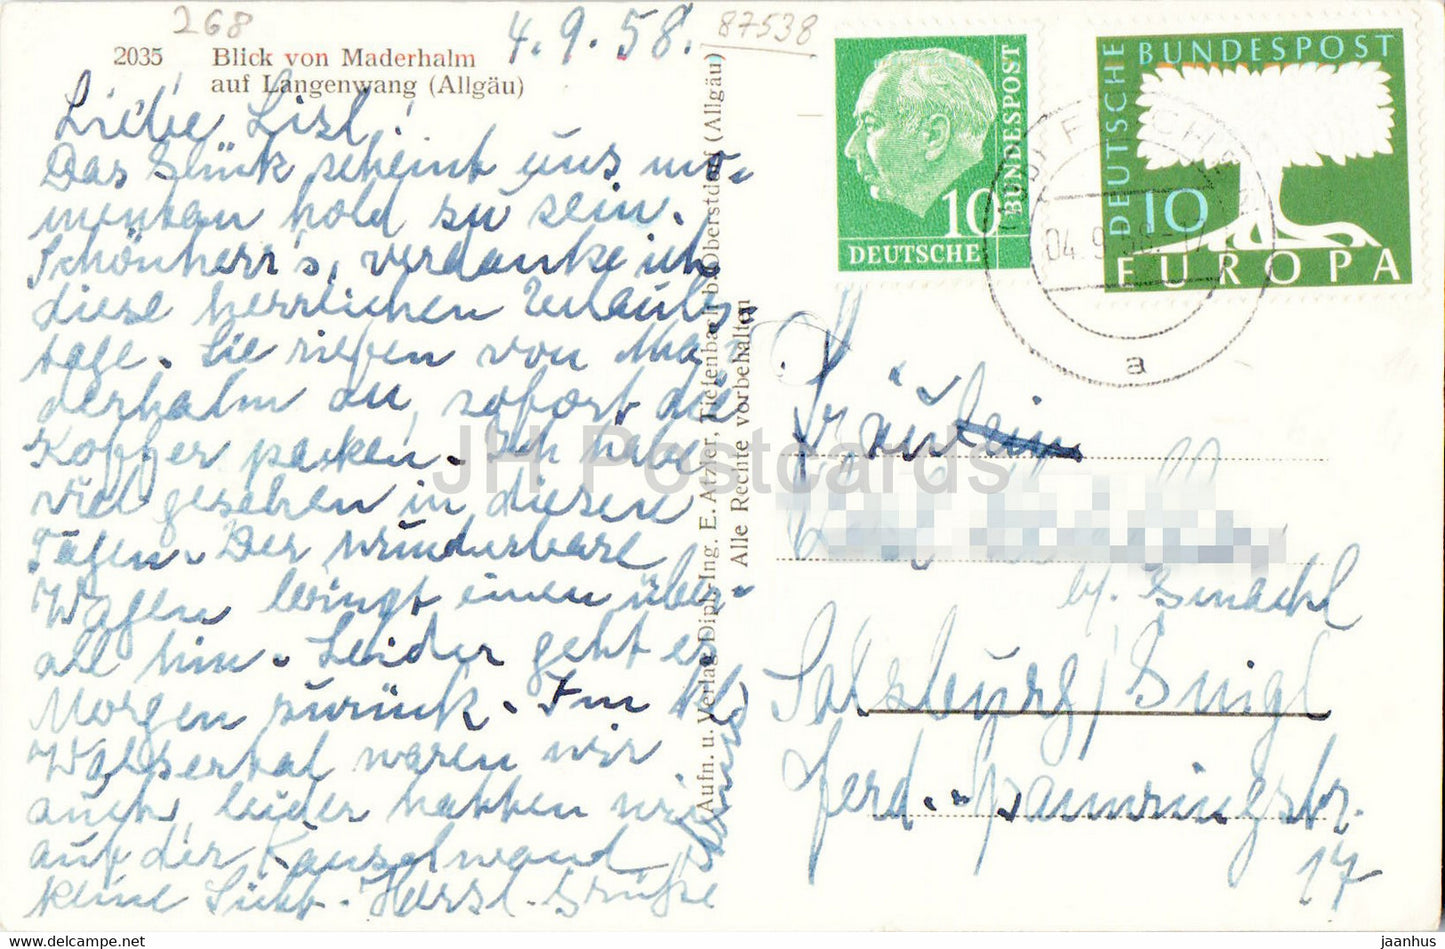 268
4.9.58.
87538
2035 Blick von Maderhalm
auf Langenwang (Allgäu)
Liebe Lisl!
Das Glück scheint uns mo-
mentan hold zu sein.
Schönherr's, verdanke ich
diese herrlichen Urlaubs
tage. Sie riefen von Ma-
derhalm an, sofort die
Koffer packen. Ich habe
viel gesehen in diesen
Tagen. Der wunderbare
Wagen bringt einen über-
all hin. Leider geht es
Morgen zurück. Im
Walsertal waren wir
auch, leider hatten wir
auf der Kanzelwand
keine Sicht. Herzl. Grüße
Aufn. u. Verlag Dipl.-Ing. E. Atzler, Tiefenbach b. Oberstdorf (Allgäu)
Alle Rechte vorbehalten
10
DEUTSCHE
BUNDESPOST
DEUTSCHE
BUNDESPOST
10
EUROPA
04.9.58-17
a
Fräulein
b/. Gmachl
Salzburg/Gnigl
Ferd.-Spannringstr.
17
JH Postcards
jaanhus — www.delcampe.net